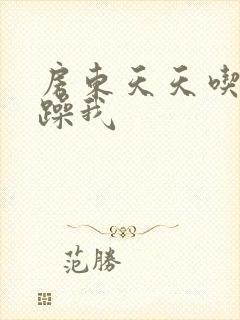 房東天天喫
躁我
范勝